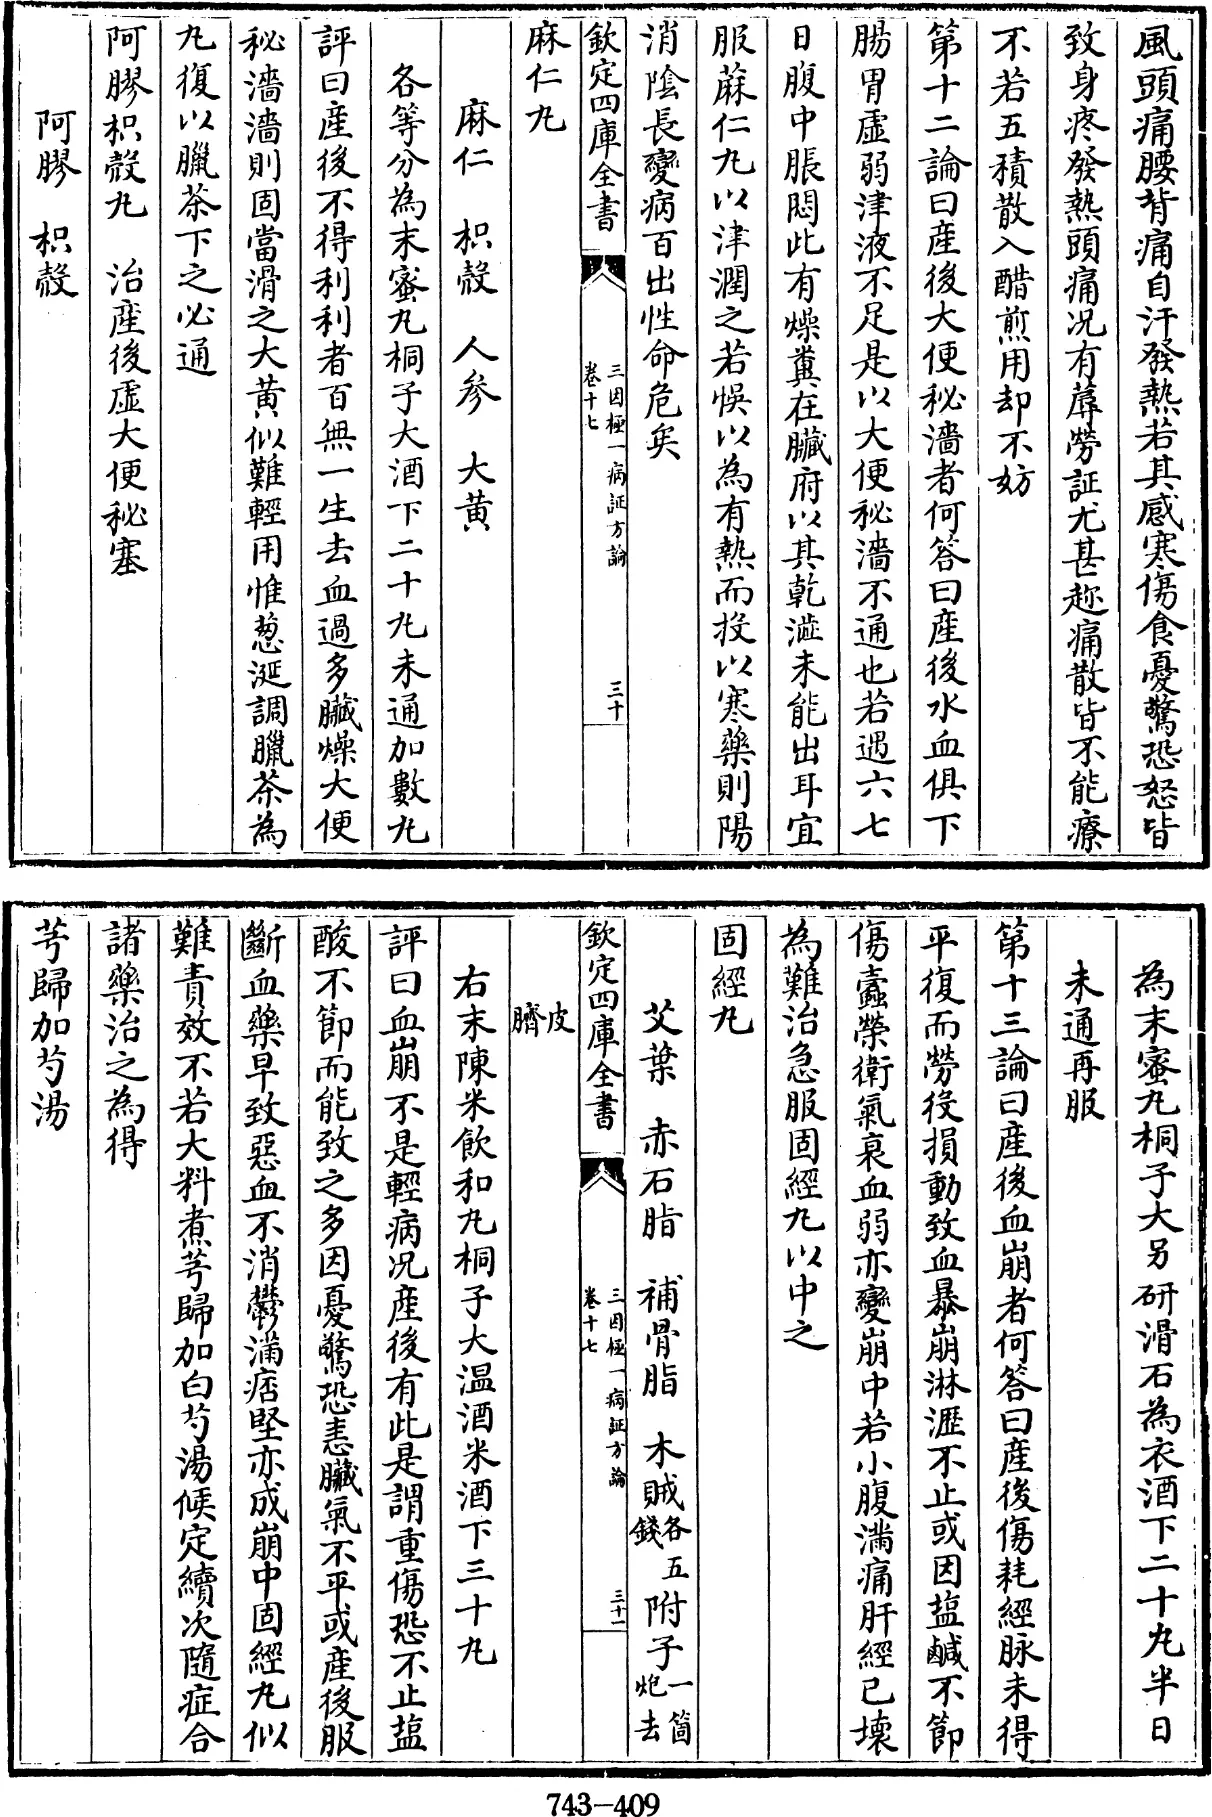 風頭痛腰背痛自汗發熱若其感寒傷食憂驚恐怒皆
致身疼發熱頭痛况有蓐勞証尤甚趂痛散皆不能療
不若五積散入醋煎用却不妨
第十二論曰産後大便秘濇者何答曰産後水血俱下
腸胃虛弱津液不足是以大便秘濇不通也若遇六七
日腹中脹悶此有燥糞在臟府以其乾澁未能出耳宜
服蔴仁九以津潤之若悞以為有熱而投以寒藥則陽
消陰長變病百出性命危矣
欽定四庫全書
三因極一病証方論
卷十七
三十
麻仁九
麻仁 枳殼 人参 大黄
各等分為末蜜九桐子大酒下二十九未通加數九
評曰産後不得利利者百無一生去血過多臟燥大便
秘濇濇則固當滑之大黄似難輕用惟葱涎調臘茶為
九復以臘茶下之必通
阿膠枳殼九 治産後虛大便秘塞
阿膠 枳殼
為末蜜九桐子大另研滑石為衣酒下二十九半日
未通再服
第十三論曰産後血崩者何答曰産後傷耗經脉未得
平復而勞役損動致血暴崩淋瀝不止或因塩鹹不節
傷蠹榮衛氣衰血弱亦變崩中若小腹滿痛肝經已壊
為難治急服固經九以中之
固經九
艾葉 赤石脂 補骨脂 木賊各五錢 附子一箇炮去
欽定四庫全書
三因極一病証方論
卷十七
三十一
皮臍
右末陳米飲和九桐子大温酒米酒下三十九
評曰血崩不是輕病况産後有此是謂重傷恐不止塩
酸不節而能致之多因憂驚恐恚臟氣不平或産後服
斷血藥早致惡血不消鬱滿痞堅亦成崩中固經九似
難責效不若大料煮芎歸加白芍湯候定續次隨症合
諸藥治之為得
芎歸加芍湯
743-409